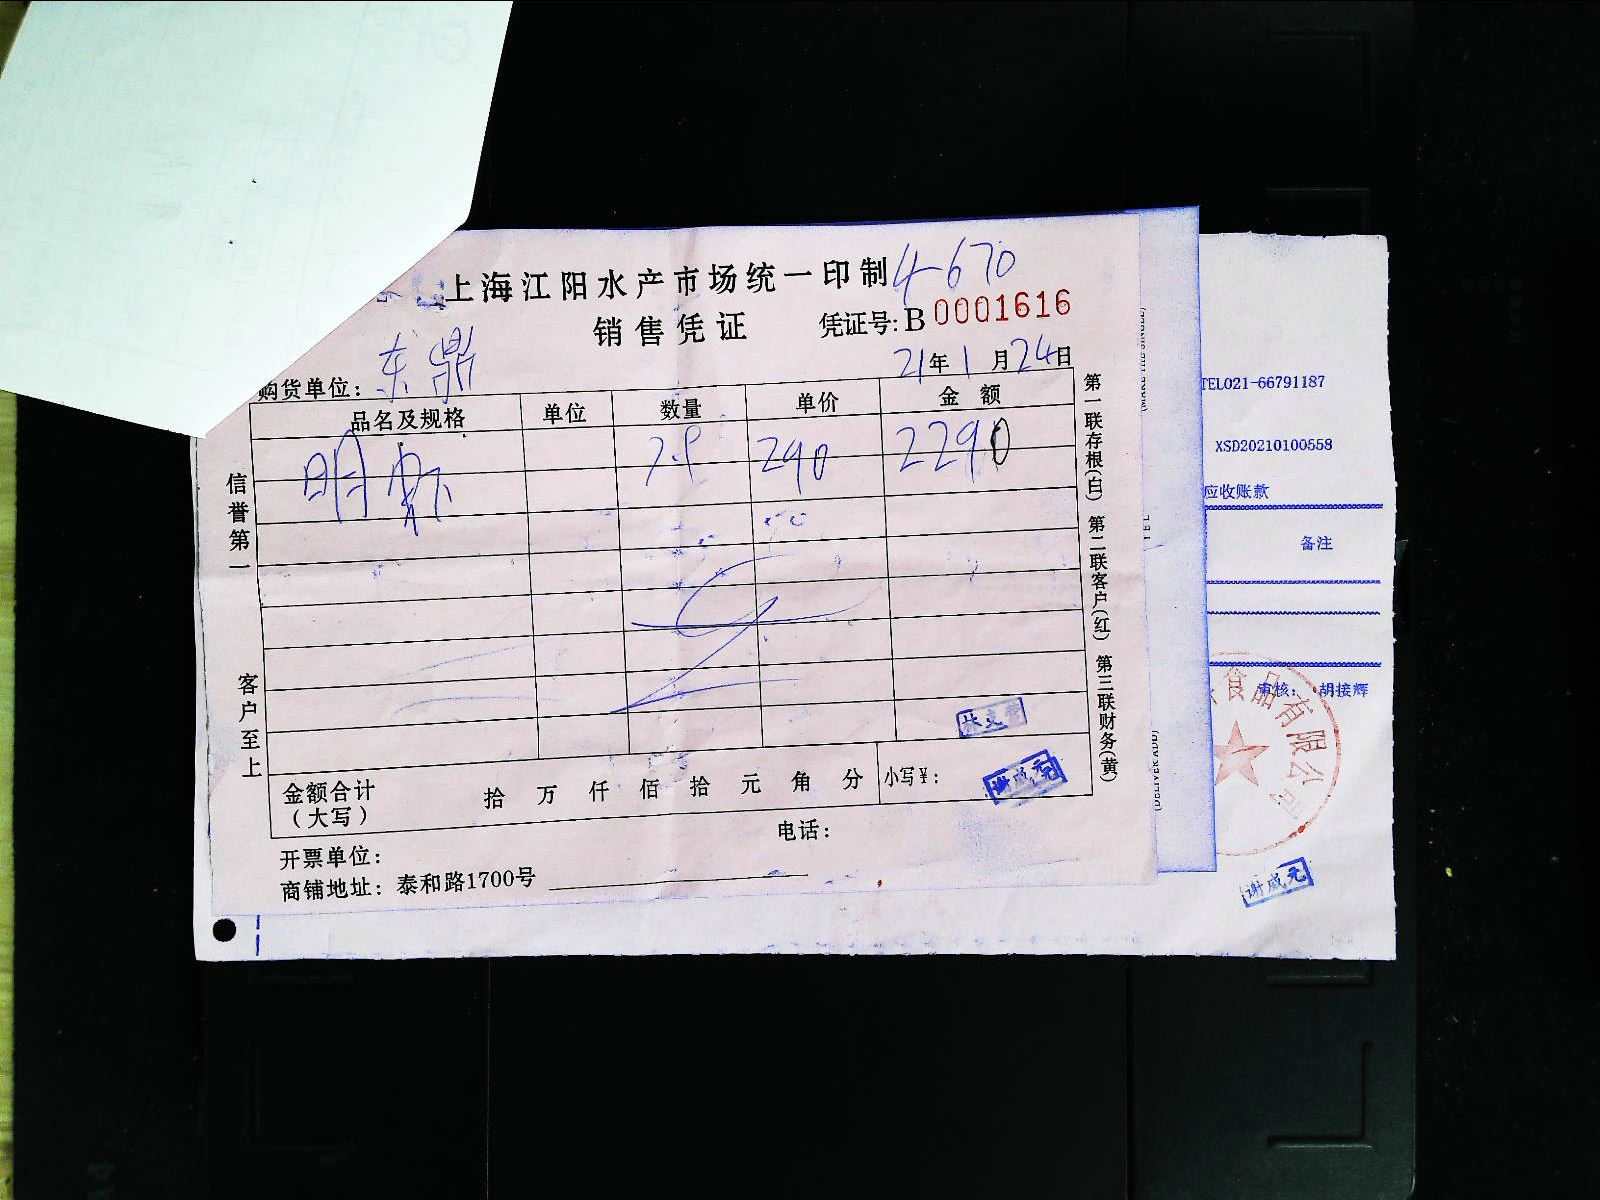 上海江阳水产市场统一印制 4-670
销售凭证 凭证号: B 0001616
购货单位: 东鼎 21年1月24日
品名及规格 单位 数量 单价 金额
明虾 7.9 290 2290
信誉第一 客户至上
第一联存根(白) 第二联客户(红) 第三联财务(黄)
金额合计(大写) 拾 万 仟 佰 拾 元 角 分 小写¥:
谢成元
电话:
开票单位:
商铺地址: 泰和路1700号
TEL021-66791187
XSD20210100558
应收账款
备注
审核: 胡接辉
食品有限公司
谢成元
(DELIVER ADD)